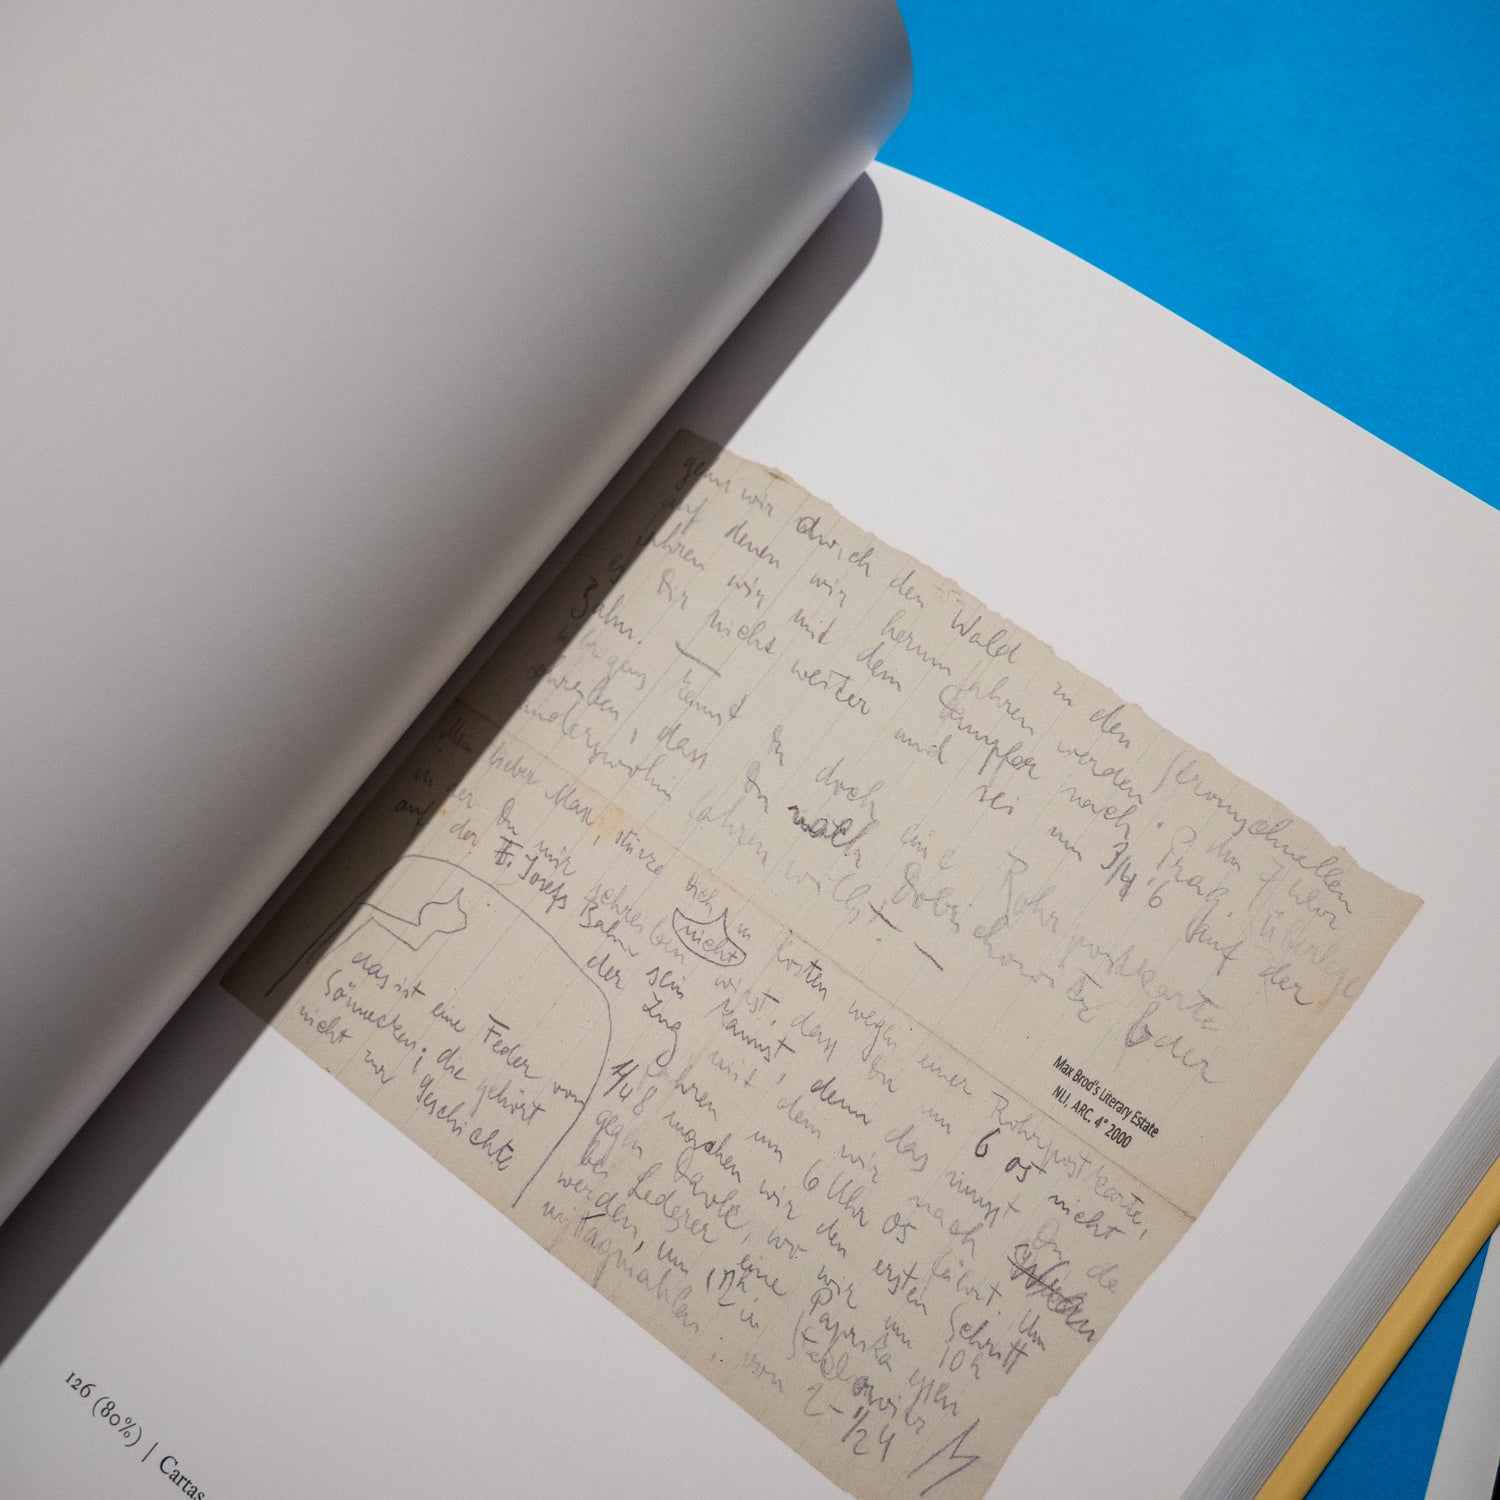 gehn wir durch den Wald zu den Stromschnellen
auf denen wir herumfahren werden. Um 7 Uhr
fahren wir mit dem Dampfer nach Prag. Überlege
es Dir nicht weiter und sei um 3/4 6 auf der
Bahn. — Übrigens kannst Du doch eine Rohrpostkarte
schreiben, dass Du nach Dobřichowitz oder
anderswohin fahren willst. —
Mein lieber Max, stürze Dich nicht in Kosten wegen einer Rohrpostkarte,
in der Du mir schreiben wirst, dass Du um 6 05 nicht
auf der F. Josefs Bahn sein kannst, denn das musst Du da
der Zug mit dem wir nach Wran
fahren um 6 Uhr 05 fährt. Um
1/4 8 machen wir den ersten Schritt
gegen Davle, wo wir um 10 h
bei Lederer eine Paprika essen
werden, um 12 h in Stechowitz
mittagmahlen, von 2 – 1/2 4
das ist eine Feder von
Sönnecken; die gehört
nicht zur Geschichte
Max Brod's Literary Estate
NLI, ARC. 4° 2000
126 (80%) | Cartas